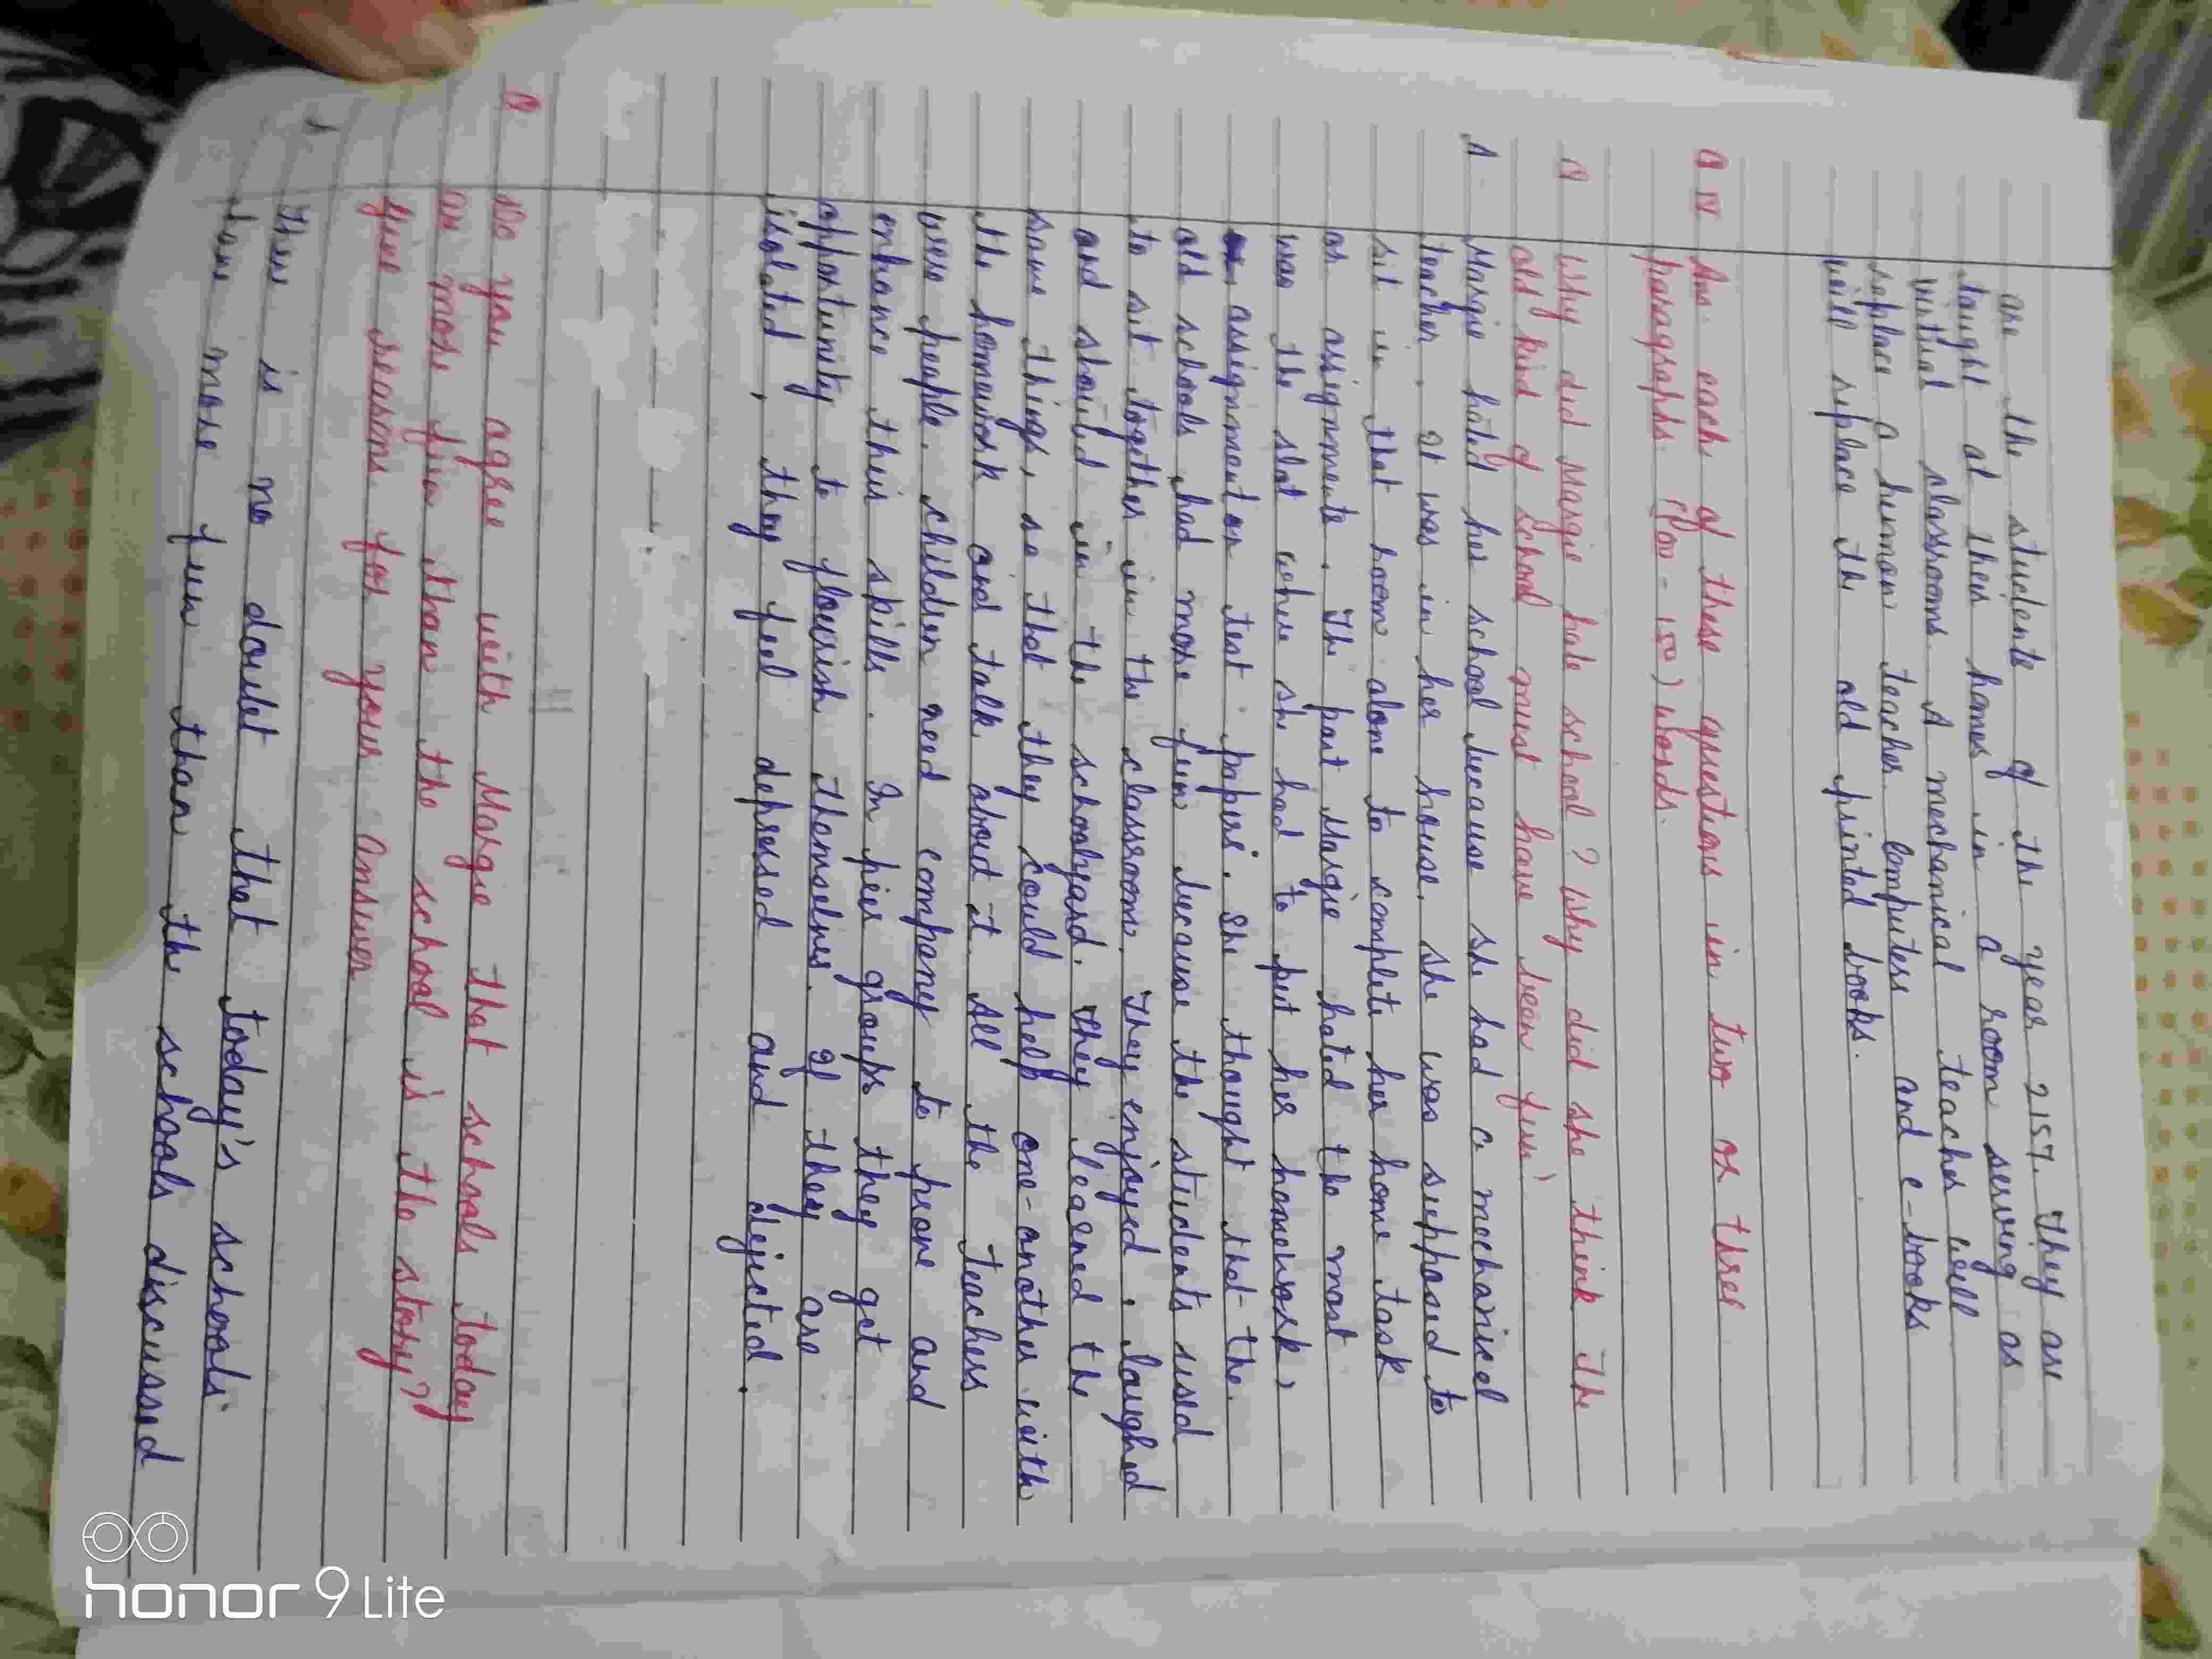 are the students of the year 2157. They are
taught at their homes in a room serving as
virtual classrooms. A mechanical teacher will
replace a human teacher. Computers and e-books
will replace the old printed books.
Q IV Ans. each of these questions in two or three
paragraphs. (100 - 150) words.
Q Why did Margie hate school? Why did she think the
old kind of school must have been fun?
A Margie hated her school because she had a mechanical
teacher. It was in her house. She was supposed to
sit in that room alone to complete her home task
or assignments. The part Margie hated the most
was the slot where she had to put her homework,
assignment or test papers. She thought that the
old schools had more fun because the students used
to sit together in the classroom. They enjoyed, laughed
and shouted in the schoolyard. They learned the
same things, so that they could help one-another with
the homework and talk about it. All the teachers
were people. Children need company to prove and
enhance their skills. In pier groups they get
opportunity to flourish themselves. If they are
isolated, they feel depressed and dejected.
Q Do you agree with Margie that schools today
are more fun than the school is the story?
give reasons for your answer
There is no doubt that today's schools
have more fun than the schools discussed
honor 9 Lite